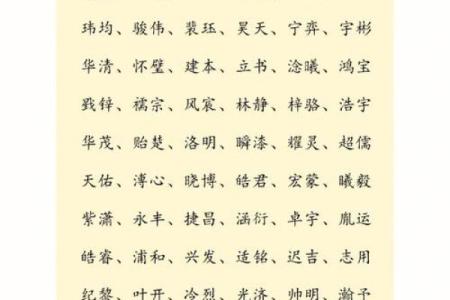 玮均、骏伟、裴珏、昊天、宁弈、宇彬
华清、怀璧、建本、立书、淰曦、鸿宝
戥锌、襦宗、风宸、林静、梓骆、浩宇
华茂、贻楚、洛明、瞬漆、耀灵、超儒
天佑、溥心、晓博、皓君、宏蒙、曦毅
紫潇、永丰、捷昌、涵衍、卓宇、胤运
皓睿、浦和、兴发、适铭、迟吉、志用
纪黎、叶开、冷烈、光济、帅明、瀚予